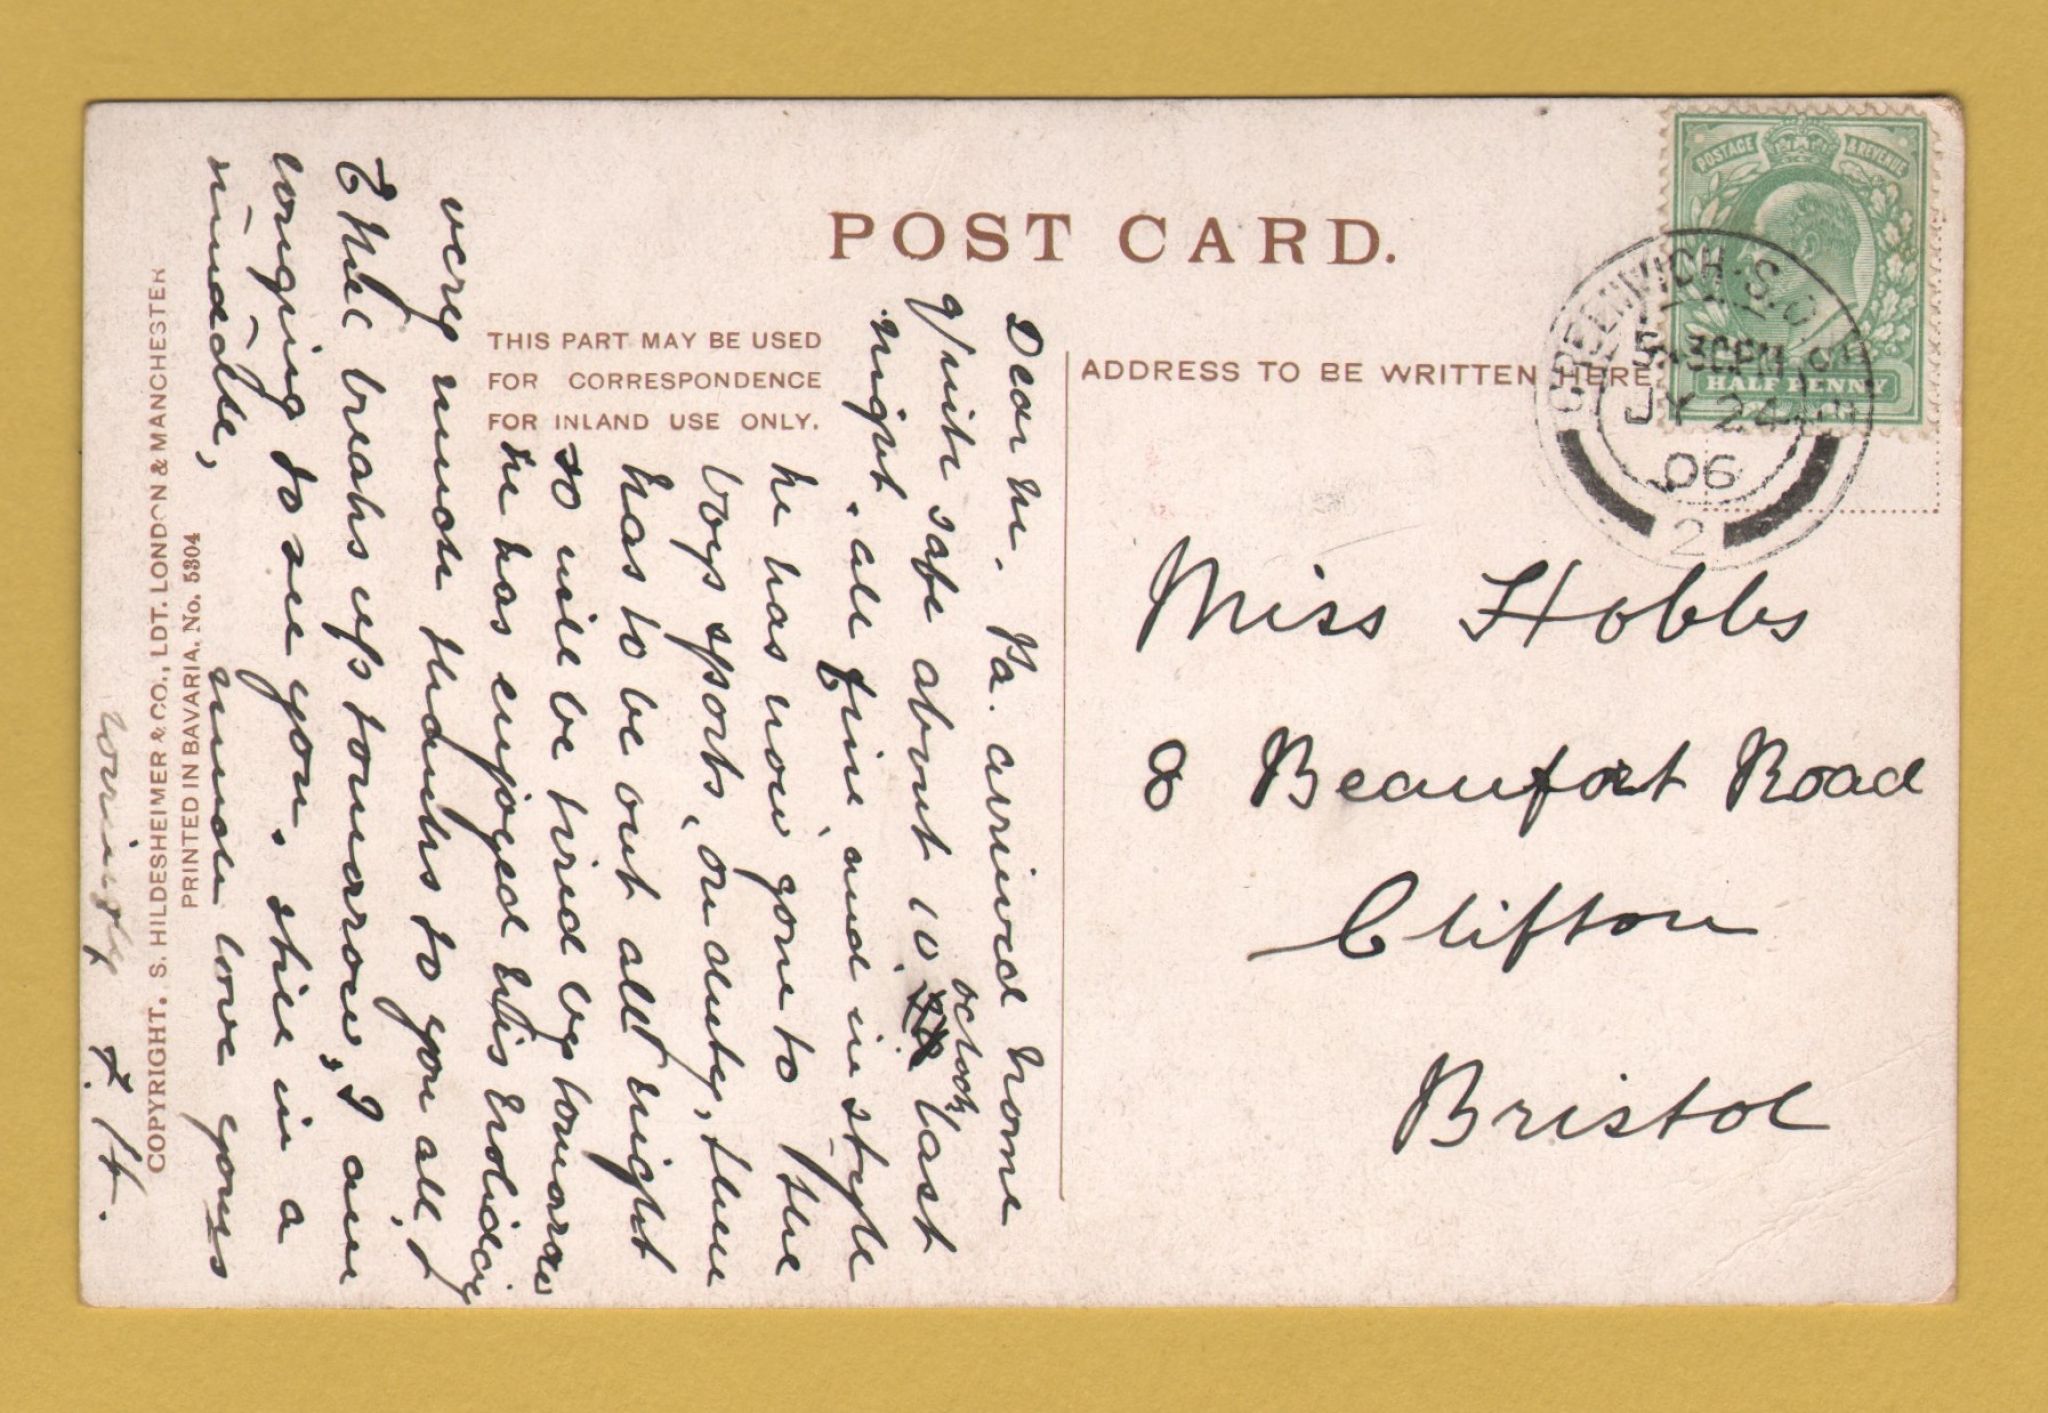 POST CARD.
THIS PART MAY BE USED
FOR CORRESPONDENCE
FOR INLAND USE ONLY.
ADDRESS TO BE WRITTEN HERE
POSTAGE & REVENUE
HALF PENNY
GREENWICH. S.O.
5.30PM
JY 24
06
2
Miss Hobbs
8 Beaufort Road
Clifton
Bristol
Dear M. Pa. arrived home
quite safe about 10 oclock last
night. all fine and in style
he has now gone to the
boys sports, on duty, then
has to be out all night
so will be tired by tomorow
he has enjoyed this holiday
very much thanks to you all,
Ethel breaks up tomorow, I am
longing to see you. still in a
muddle,
much love yours
lovingly F. H.
COPYRIGHT. S. HILDESHEIMER & CO., LDT. LONDON & MANCHESTER
PRINTED IN BAVARIA. No. 5304